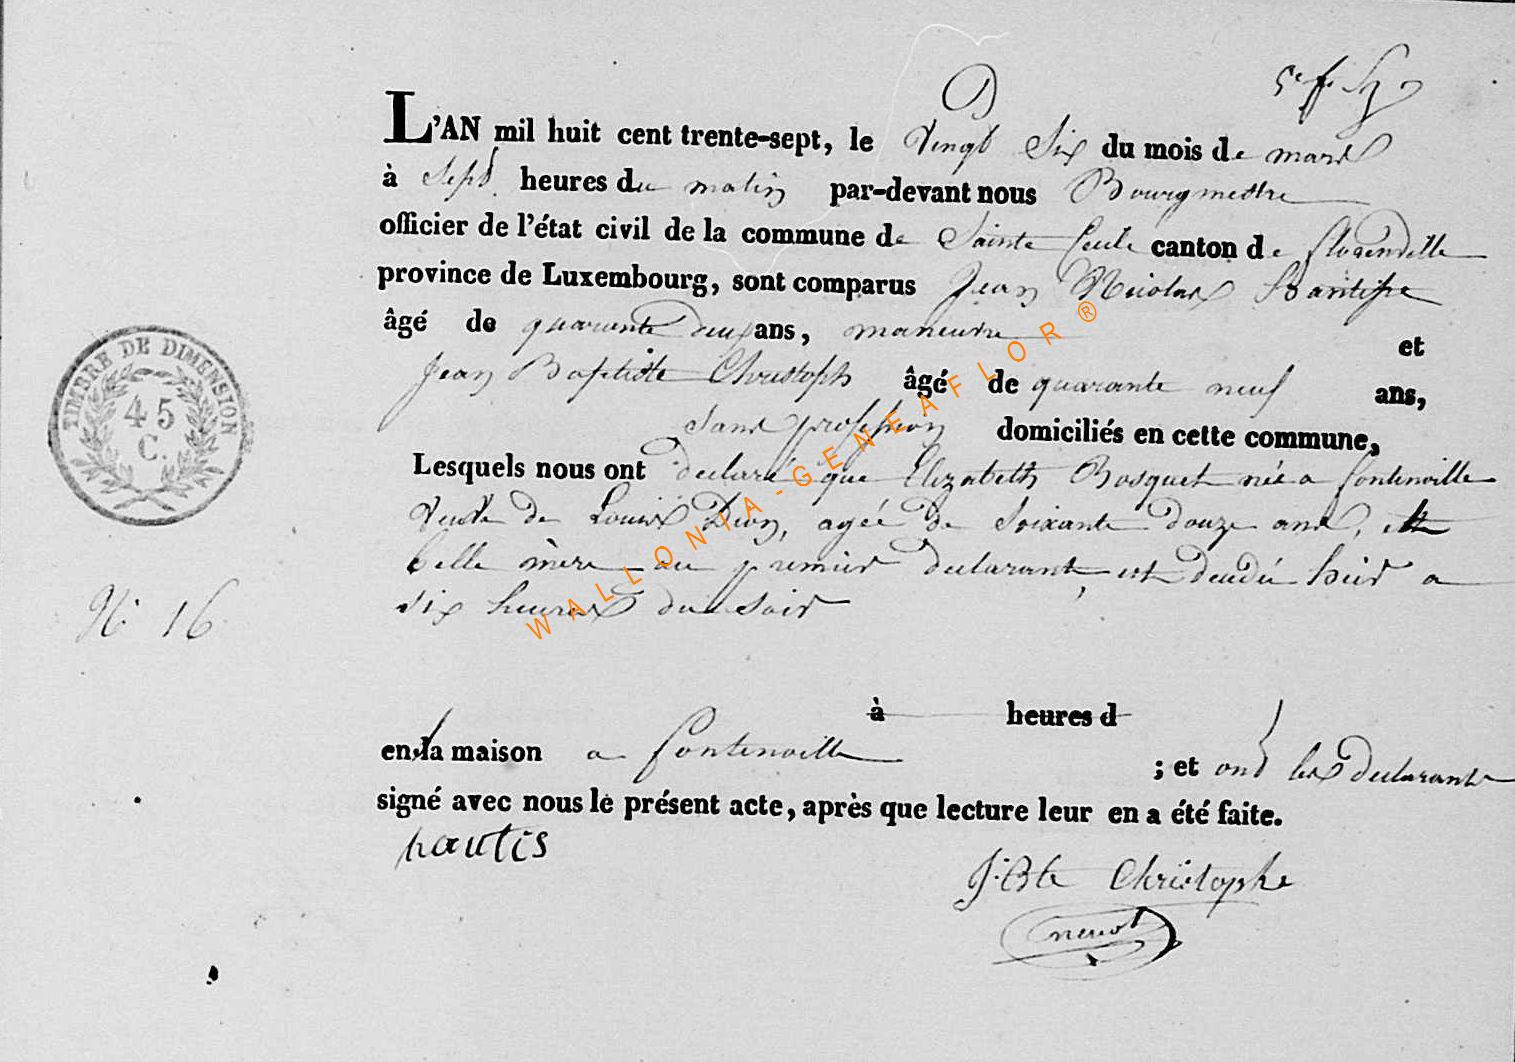 L'AN mil huit cent trente-sept, le Vingt Six du mois de mars
à Sept heures du matin par-devant nous Bourgmestre
officier de l'état civil de la commune de Sainte Cecile canton de florenville
province de Luxembourg, sont comparus Jean Nicolas
âgé de quarante deux ans, maneuvre
et
Jean Baptiste Christoph âgé de quarante neuf ans,
sans profession domiciliés en cette commune,
Lesquels nous ont declaré que Elizabeth Bosquet née a fontenoille
veuve de Louis Dion, agée de Soixante douze ans,
belle mère au premier declarant, est decedée hier a
six heures du soir
à heures d
en la maison a fontenoille ; et ont les declarants
signé avec nous le présent acte, après que lecture leur en a été faite.
J. Bte Christophe
TIMBRE DE DIMENSION
45
C.
N. 16
WALLONIA-GENEAFLOR®